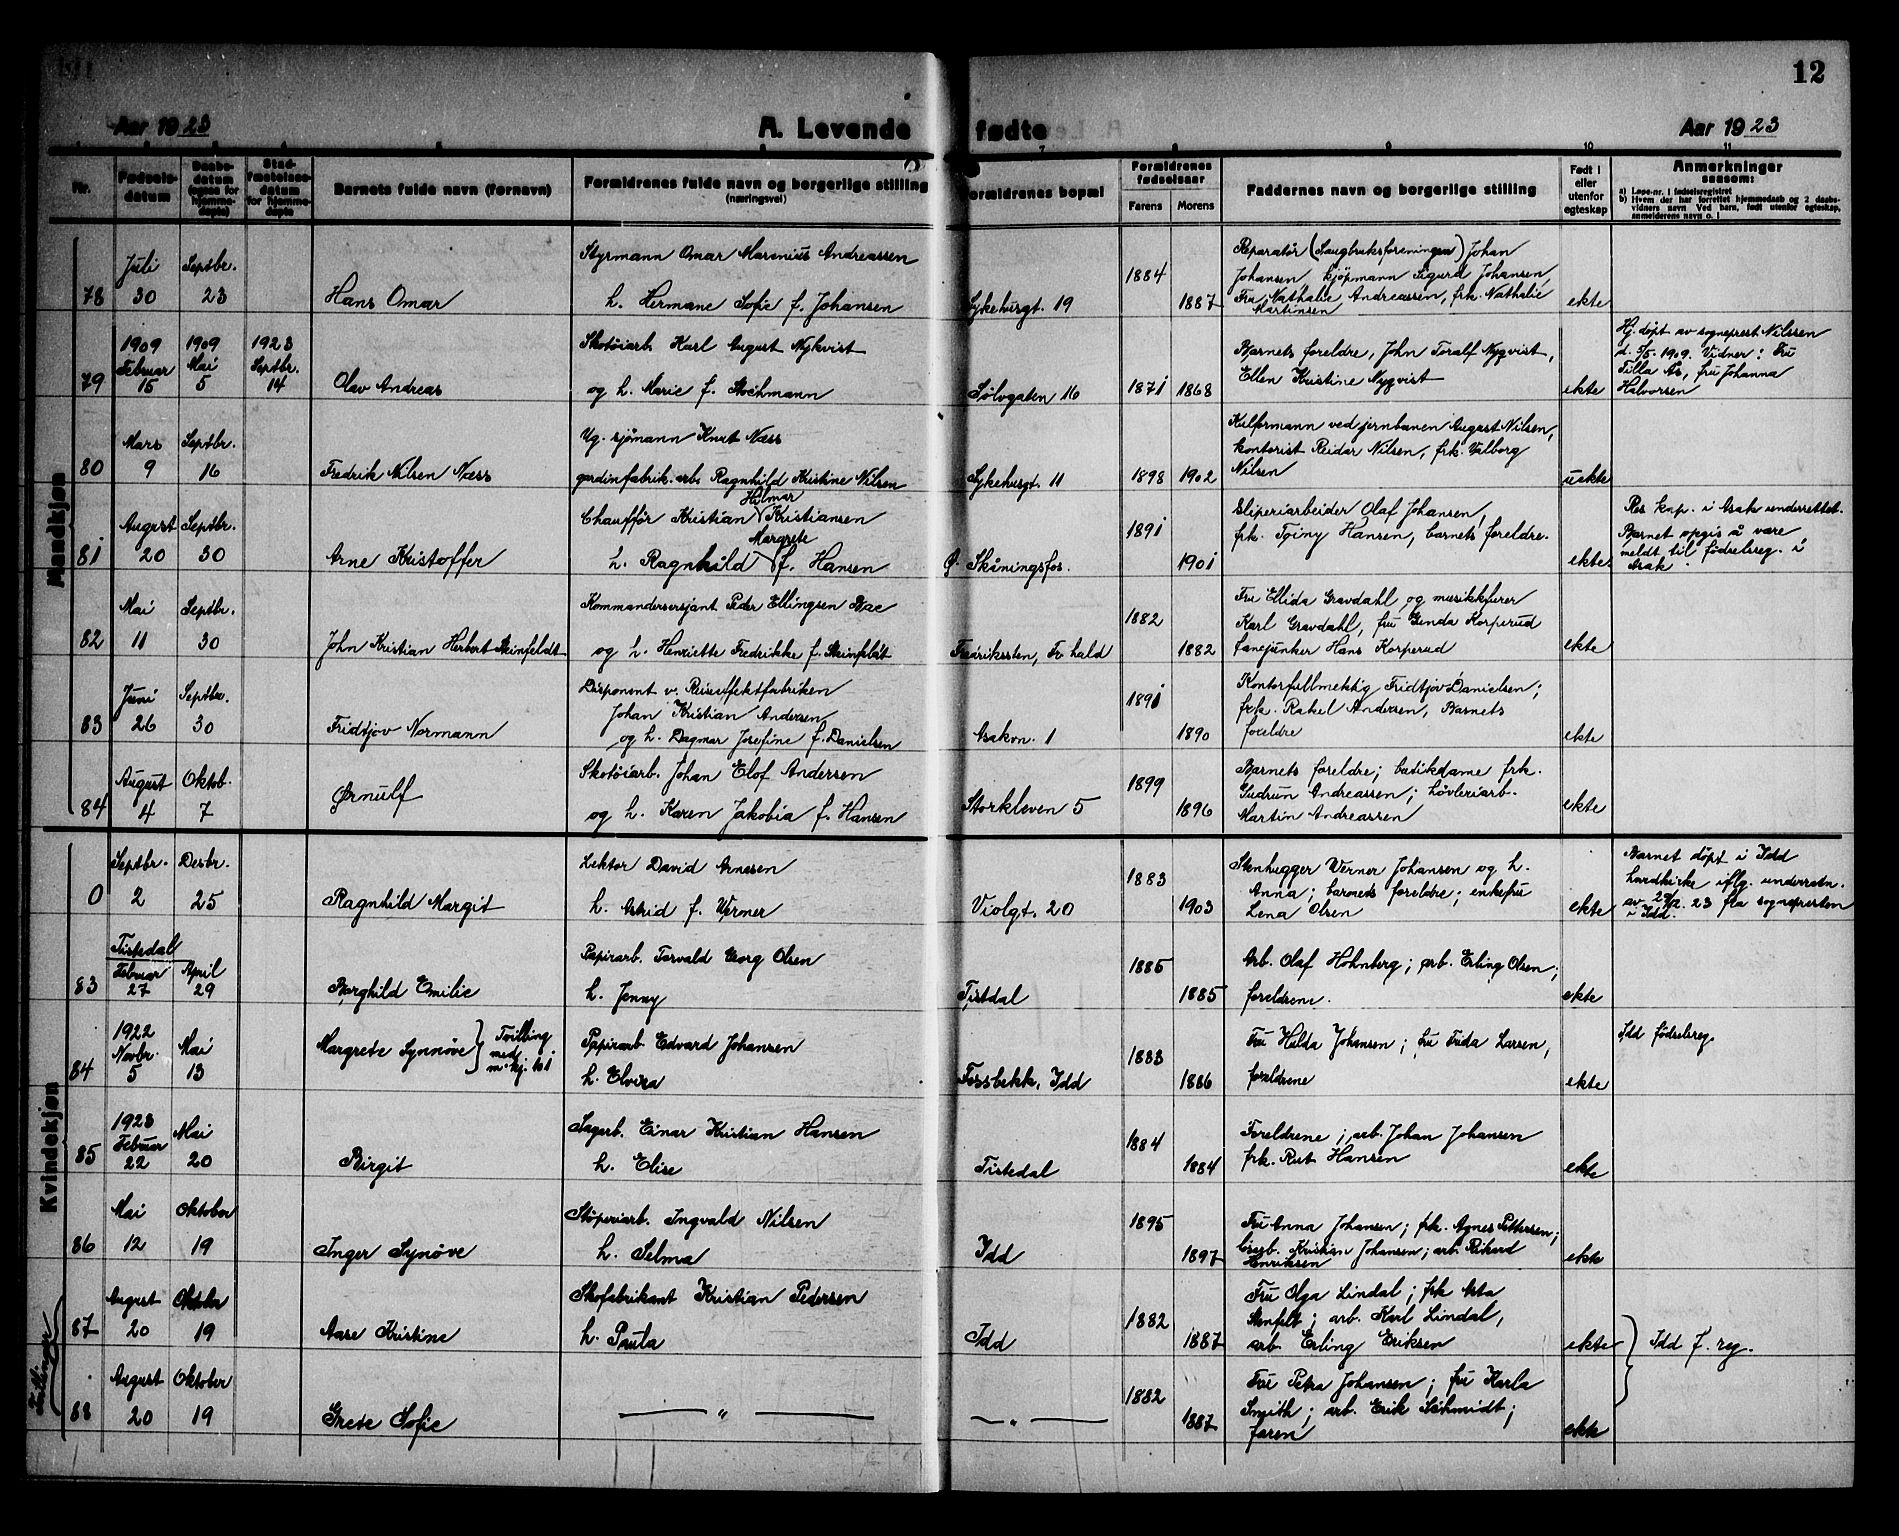 12
Aar 1923
A. Levende fødte
Aar 1923
Nr.
Fødsels-
datum
Daabs-
datum
(ogsaa for
hjemme-
døpte)
Stad-
fæstelses-
datum
for hjemme-
døpte
Barnets fulde navn (fornavn)
Forældrenes fulde navn og borgerlige stilling
(næringsvei)
Forældrenes bopæl
Forældrenes
fødselsaar
Farens
Morens
Faddernes navn og borgerlige stilling
Født i
eller
utenfor
egteskap
Anmerkninger
saasom:
a) Løpe-nr. i fødselsregistret
b) Hvem der har forrettet hjemmedaab og 2 daabs-
vidners navn Ved barn, født utenfor egteskap,
anmelderens navn o. l
Mandkjøn
78
Juli
30
Septbr.
23
Hans Omar
Styrmann Omar Marenius Andreassen
h. Hermane Sofie f. Johansen
Sykehusgt. 19
1884
1887
Reparatør (Saugbruksforeningen) Johan
Johansen, kjøpmann Sigurd Johansen,
Fru Nathalie Andreassen, frk. Nathalie
Martinsen
ekte
79
1909
Februar
15
1909
Mai
5
1923
Septbr.
14
Olav Andreas
Skotøiarb. Karl August Nykvist
og h. Marie f. Stochmann
Sølvgaten 16
1871
1868
Barnets foreldre, John Toralf Nyqvist,
Ellen Kristine Nyqvist
ekte
Hj. døpt av sogneprest Nilssen
d. 5/5 1909. Vidner: Fru
Tilla As, fru Johanna
Halvorsen
80
Mars
9
Septbr.
16
Fredrik Nilsen Næss
Ug. sjømann Knut Næss
gardinfabrik.arb. Ragnhild Kristine Nilsen
Sykehusgt. 11
1898
1902
August Nilsen,
kontorist Reidar Nilsen, frk. Valborg
Nilsen
uekte
81
August
20
Septbr.
30
Arne Kristoffer
Hilmar
Chauffør Kristian Kristiansen
Margrete
h. Ragnhild f. Hansen
Ø. Skåningsfos.
1891
1901
Sliperiarbeider Olaf Johansen,
frk. Toiny Hansen, barnets foreldre.
ekte
Res. kap. i Asak underrettet.
Barnet opgis å være
meldt til fødselsreg. i
Asak.
82
Mai
11
Septbr.
30
John Kristian Herbert Steinfeldt
Kommandersersjant Peder Ellingsen Bae
og h. Henriette Fredrikke f. Steinfeldt
Fredrikssten, Fr.hald
1882
1882
Fru Ellida Gravdahl og musikkfører
Karl Gravdahl, fru Gunda Korperud
fanejunker Hans Korperud
ekte
83
Juni
26
Septbr.
30
Fridtjov Normann
Disponent v. Reiseeffektfabriken
Johan Kristian Andersen
og h. Dagmar Josefine f. Danielsen
Asakvn. 1
1891
1890
Kontorfullmektig Fridtjov Danielsen;
frk. Rakel Andersen, Barnets
foreldre
ekte
84
August
4
Oktob.
7
Ørnulf
Skotøiarb. Johan Elof Andersen
og h. Karen Jakobia f. Hansen
Storkleven 5
1899
1896
Barnets foreldre; butikdame frk.
Gudrun Andreassen; høvleriarb.
Martin Andreassen
ekte
Kvindekjøn
0
Septbr.
2
Desbr.
25
Ragnhild Margit
Lektor David Arnesen
h. Astrid f. Werner
Violgt. 20
1883
1903
Stenhugger Werner Johansen og h.
Anna; barnets foreldre; enkefru
Lena Olsen
ekte
Barnet døpt i Idd
hardkirke iflg. underretn.
av 23 fra sognepresten
i Idd.
83
Tistedal
Februar
27
April
29
Borghild Emilie
Papirarb. Torvald Georg Olsen
h. Jenny
Tistdal
1885
1885
Arb. Olaf Hohnberg; arb. Erling Olsen;
foreldrene.
ekte
84
1922
Novbr.
5
Mai
13
Margrete Synnøve
Tvilling
med
m.kj. 101
Papirarb. Edvard Johansen
h. Elvira
Fossbekk, Idd
1883
1886
Fru Hilda Johansen; fru Frida Larsen,
foreldrene
ekte
Idd fødselsreg.
85
1923
Februar
22
Mai
20
Birgit
Sagarb. Einar Kristian Hansen
h. Elise
Tistedal
1884
1884
Foreldrene; arb. Johan Johansen
frk. Rut Hansen
ekte
86
Mai
12
Oktober
19
Inger Synøve
Støperiarb. Ingvald Nilsen
h. Selma
Idd
1895
1897
Fru Anna Johansen; frk. Agnes Pettersen;
Kristian Johansen; arb. Rikard
Henriksen
ekte
Tvillinger
87
August
20
Oktober
19
Aase Kristine
Skofabrikant Kristian Pedersen
h. Paula
Idd
1882
1887
Fru Olga Lindal; frk Asta
Stenfelt; arb. Karl Lindal,
arb. Erling Eriksen
ekte
Idd f. reg.
88
August
20
Oktober
19
Grete Sofie
— " —
— " —
1882
1887
Fru Petra Johansen; fru Karla
Smith; arb. Erik Schmidt;
faren
ekte